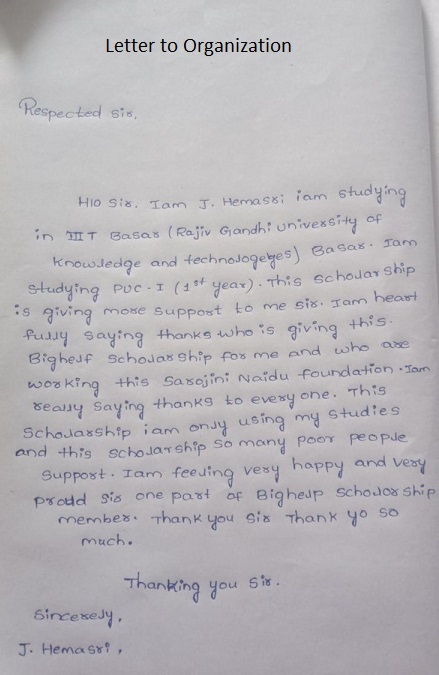 Letter to Organization
Respected sir,
Hlo Sir. Iam J. Hemasri iam studying
in IIIT Basar (Rajiv Gandhi university of
knowledge and technologeges) Basar. Iam
studying PUC-I (1st year). This scholarship
is giving more support to me sir. Iam heart
fully saying thanks who is giving this.
Bighelf scholarship for me and who are
working this Sarojini Naidu foundation. Iam
really saying thanks to everyone. This
Scholarship iam only using my studies
and this scholarship so many poor people
support. Iam feeling very happy and very
proud sir one part of Bighelp scholor ship
member. Thank you sir Thank yo so
much.
Thanking you sir.
Sincerely,
J. Hemasri,